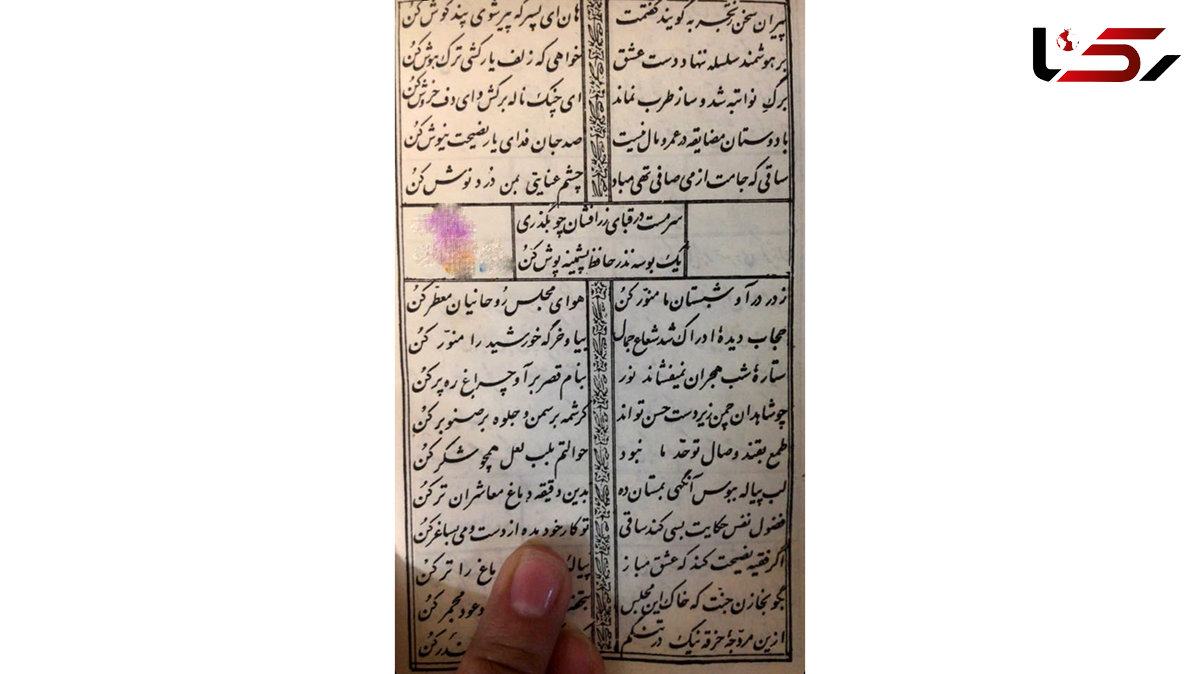 رکنا
پیران سخن ز تجربه گویند گفتمت هان ای پسر که پیر شوی پند گوش کن
بر هوشمند سلسله ننهاد دست عشق خواهی که زلف یار کشی ترک هوش کن
برگ نوا تبه شد و ساز طرب نماند ای چنگ ناله برکش و ای دف خروش کن
با دوستان مضایقه در عمر و مال نیست صد جان فدای یار نصیحت نیوش کن
ساقی که جامت از می صافی تهی مباد چشم عنایتی بمن درد نوش کن
سرمست در قبای زرافشان چو بگذری
یک بوسه نذر حافظ پشمینه پوش کن
ز در درآ و شبستان ما منوّر کن هوای مجلس رُوحانیان معطّر کن
حجاب دیدهٔ ادراک شد شعاع جمال بیا و خرگه خورشید را منوّر کن
ستارهٔ شب هجران نمیفشاند نور ببام قصر برآ و چراغ ره بر کن
چو شاهدان چمن زیردست حسن تواند کرشمه بر سمن و جلوه بر صنوبر کن
طمع بقند وصال تو حدّ ما نبود حوالتم بلب لعل همچو شکر کن
لب پیاله ببوس آنگهی بمستان ده بدین دقیقه دماغ معاشران تر کن
فضول نفس حکایت بسی کند ساقی تو کار خود مده از دست و می بساغر کن
اگر فقیه نصیحت کند که عشق مباز پیاله باغ را تر کن
بگو بخازن جنّت که خاک این مجلس بتحفه و عود مجمر کن
ازین مزوّجهٔ خرقه نیک در تنگم کن